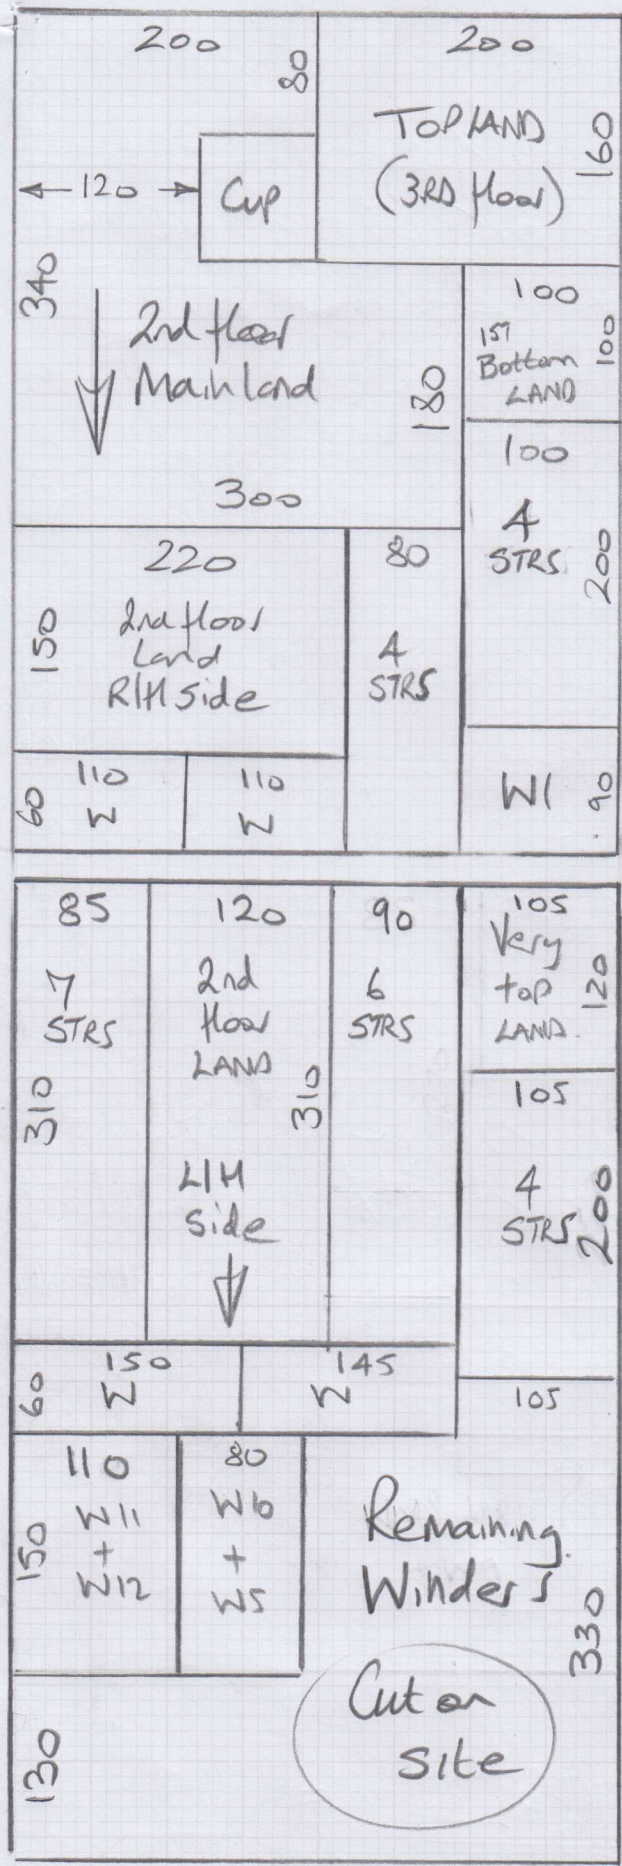 200
200
80
TOPLAND
(3RD floor)
160
120
Cup
340
2nd floor
Mainland
180
300
100
1ST
Bottom
LAND
100
100
4
STRS
200
220
150
2nd floor
Land
R/H side
80
4
STRS
60
110
W
110
W
W1
90
85
7
STRS
310
120
2nd
floor
LAND
310
L/H
Side
90
6
STRS
105
Very
top
LAND
120
105
4
STRS
200
60
150
W
145
W
105
110
W11
+
W12
150
80
W10
+
W5
Remaining
Winders
330
Cut on
site
130